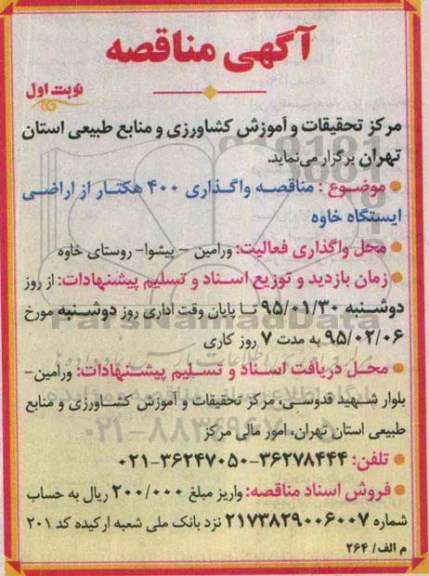 آگهی مناقصه
نوبت اول
مرکز تحقیقات و آموزش کشاورزی و منابع طبیعی استان
تهران برگزار می‌نماید.
● موضوع : مناقصه واگذاری ۴۰۰ هکتار از اراضی
ایستگاه خاوه
● محل واگذاری فعالیت: ورامین – پیشوا- روستای خاوه
● زمان بازدید و توزیع اسناد و تسلیم پیشنهادات: از روز
دوشنبه ۹۵/۰۱/۳۰ تا پایان وقت اداری روز دوشنبه مورخ
۹۵/۰۲/۰۶ به مدت ۷ روز کاری
● محل دریافت اسناد و تسلیم پیشنهادات: ورامین-
بلوار شهید قدوسی، مرکز تحقیقات و آموزش کشاورزی و منابع
طبیعی استان تهران، امور مالی مرکز
● تلفن: ۳۶۲۷۸۴۴۴-۰۲۱-۳۶۲۴۷۰۵۰
● فروش اسناد مناقصه: واریز مبلغ ۲۰۰/۰۰۰ ریال به حساب
شماره ۲۱۷۳۸۲۹۰۰۶۰۰۷ نزد بانک ملی شعبه ارکیده کد ۲۰۱
م الف/ ۲۶۴
ParsNamadData